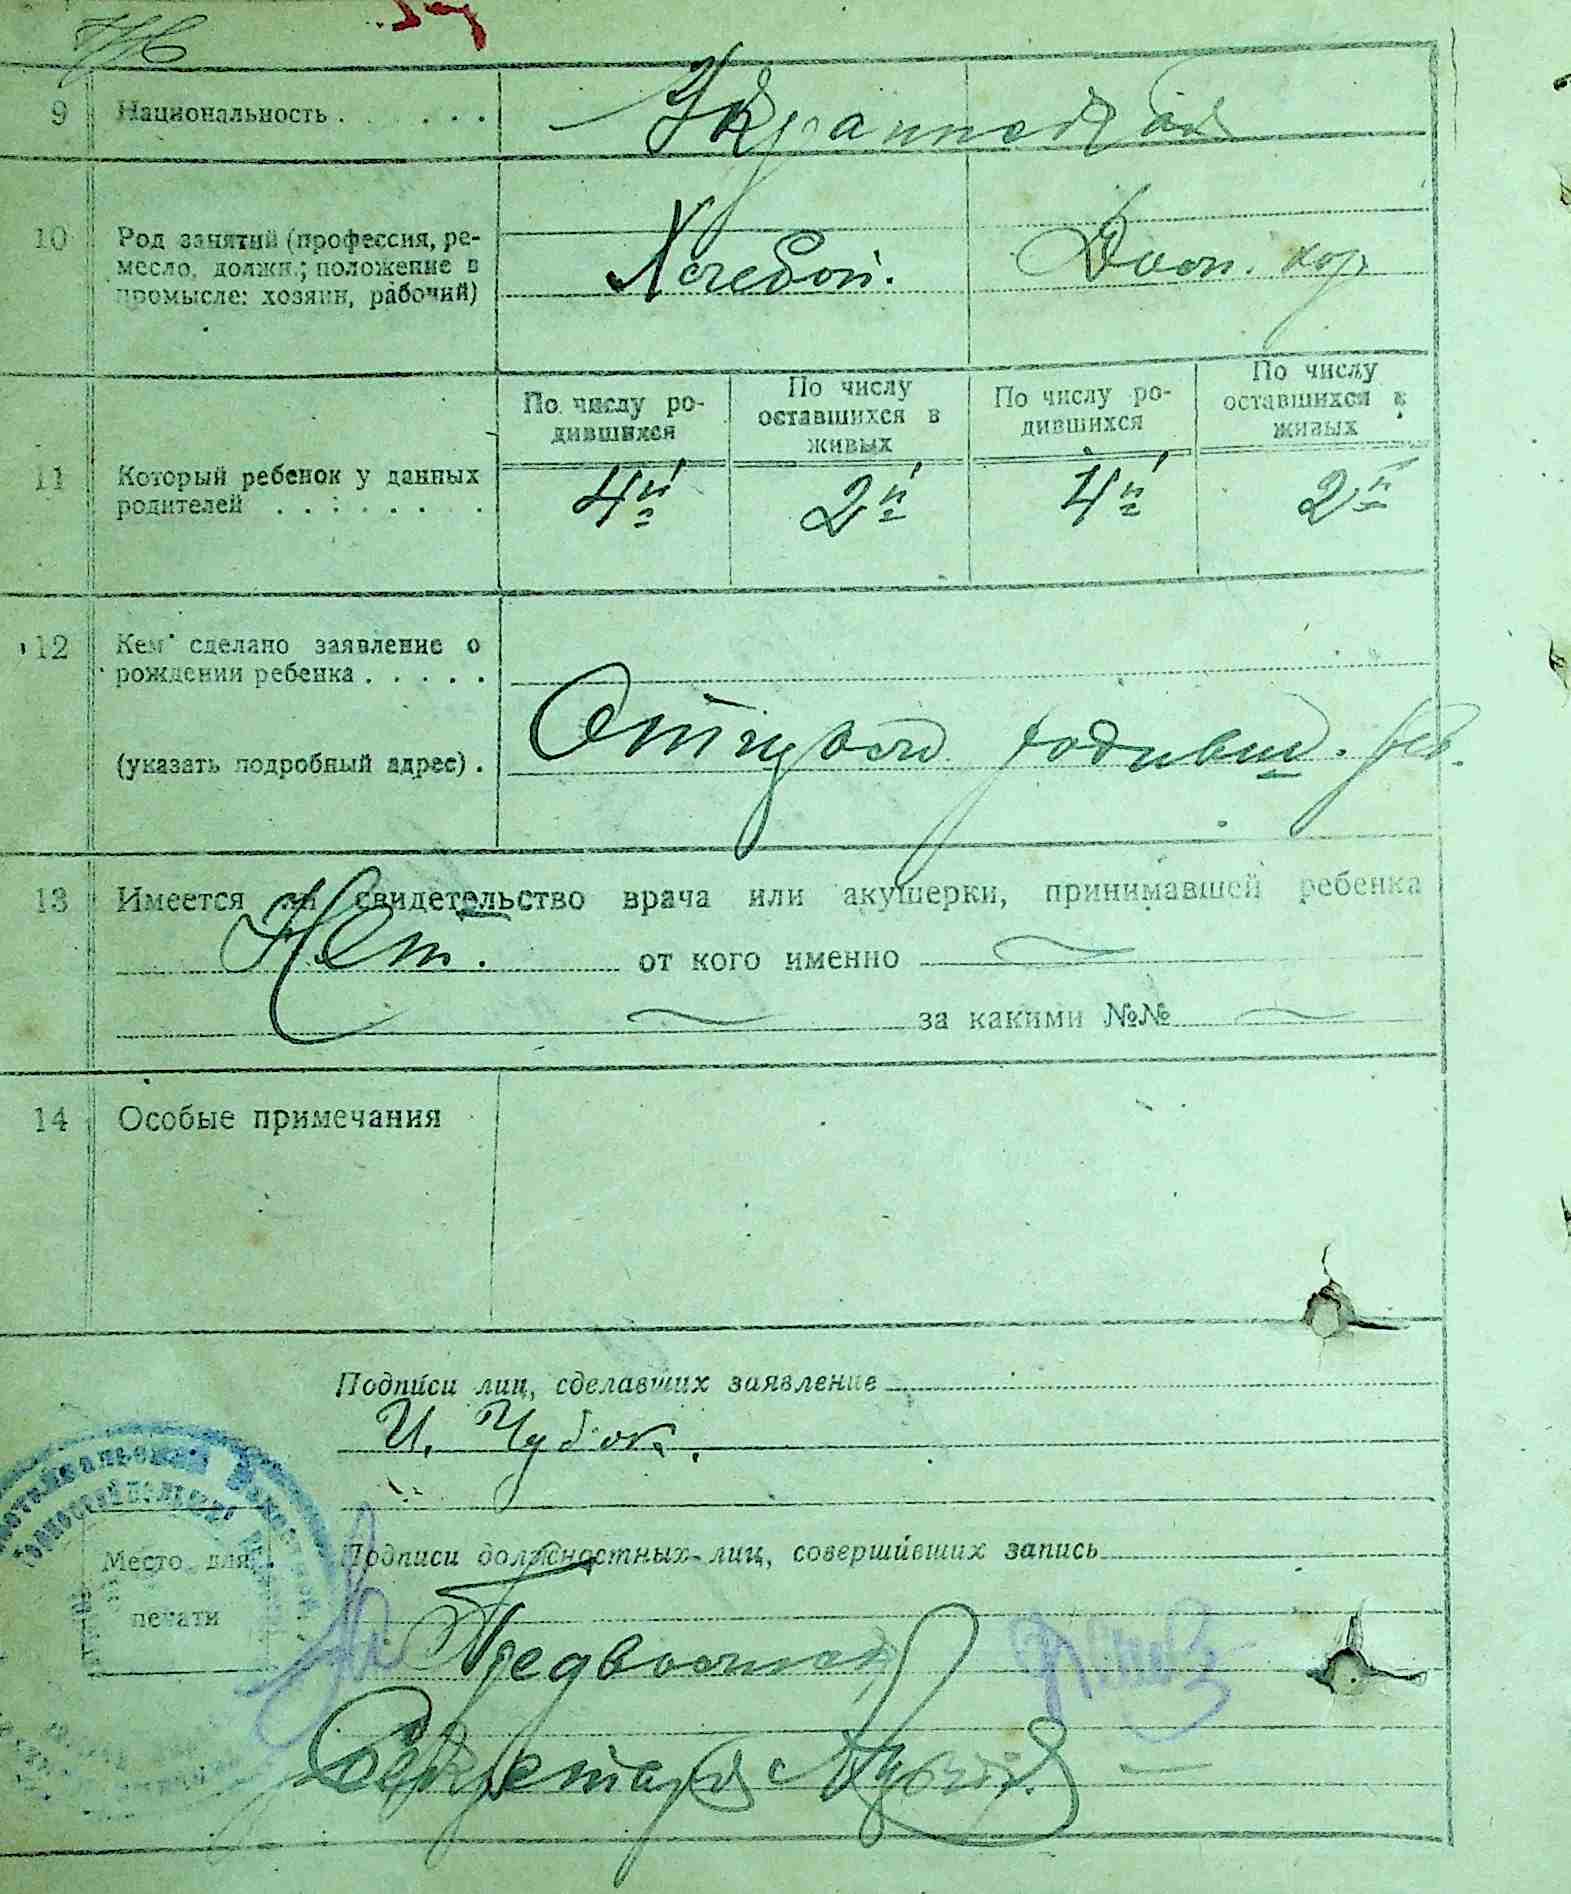 9 Национальность . . . . . . Украинская
10 Род занятий (профессия, ре-
месло, должн.; положение в
промысле: хозяин, рабочий)
Хлебоп. Дом. хоз.
По числу ро-
дившихся
По числу
оставшихся в
живых
По числу ро-
дившихся
По числу
оставшихся в
живых
11 Который ребенок у данных
родителей . . . . . . . .
4й 2й 4й 2й
12 Кем сделано заявление о
рождении ребенка . . . . .
(указать подробный адрес) .
Отцом родивш. реб.
13 Имеется ли свидетельство врача или акушерки, принимавшей ребенка
Нет. от кого именно
за какими №№
14 Особые примечания
Подписи лиц, сделавших заявление
И. Чубок.
Подписи должностных лиц, совершивших запись
Место для
печати
Секретарь